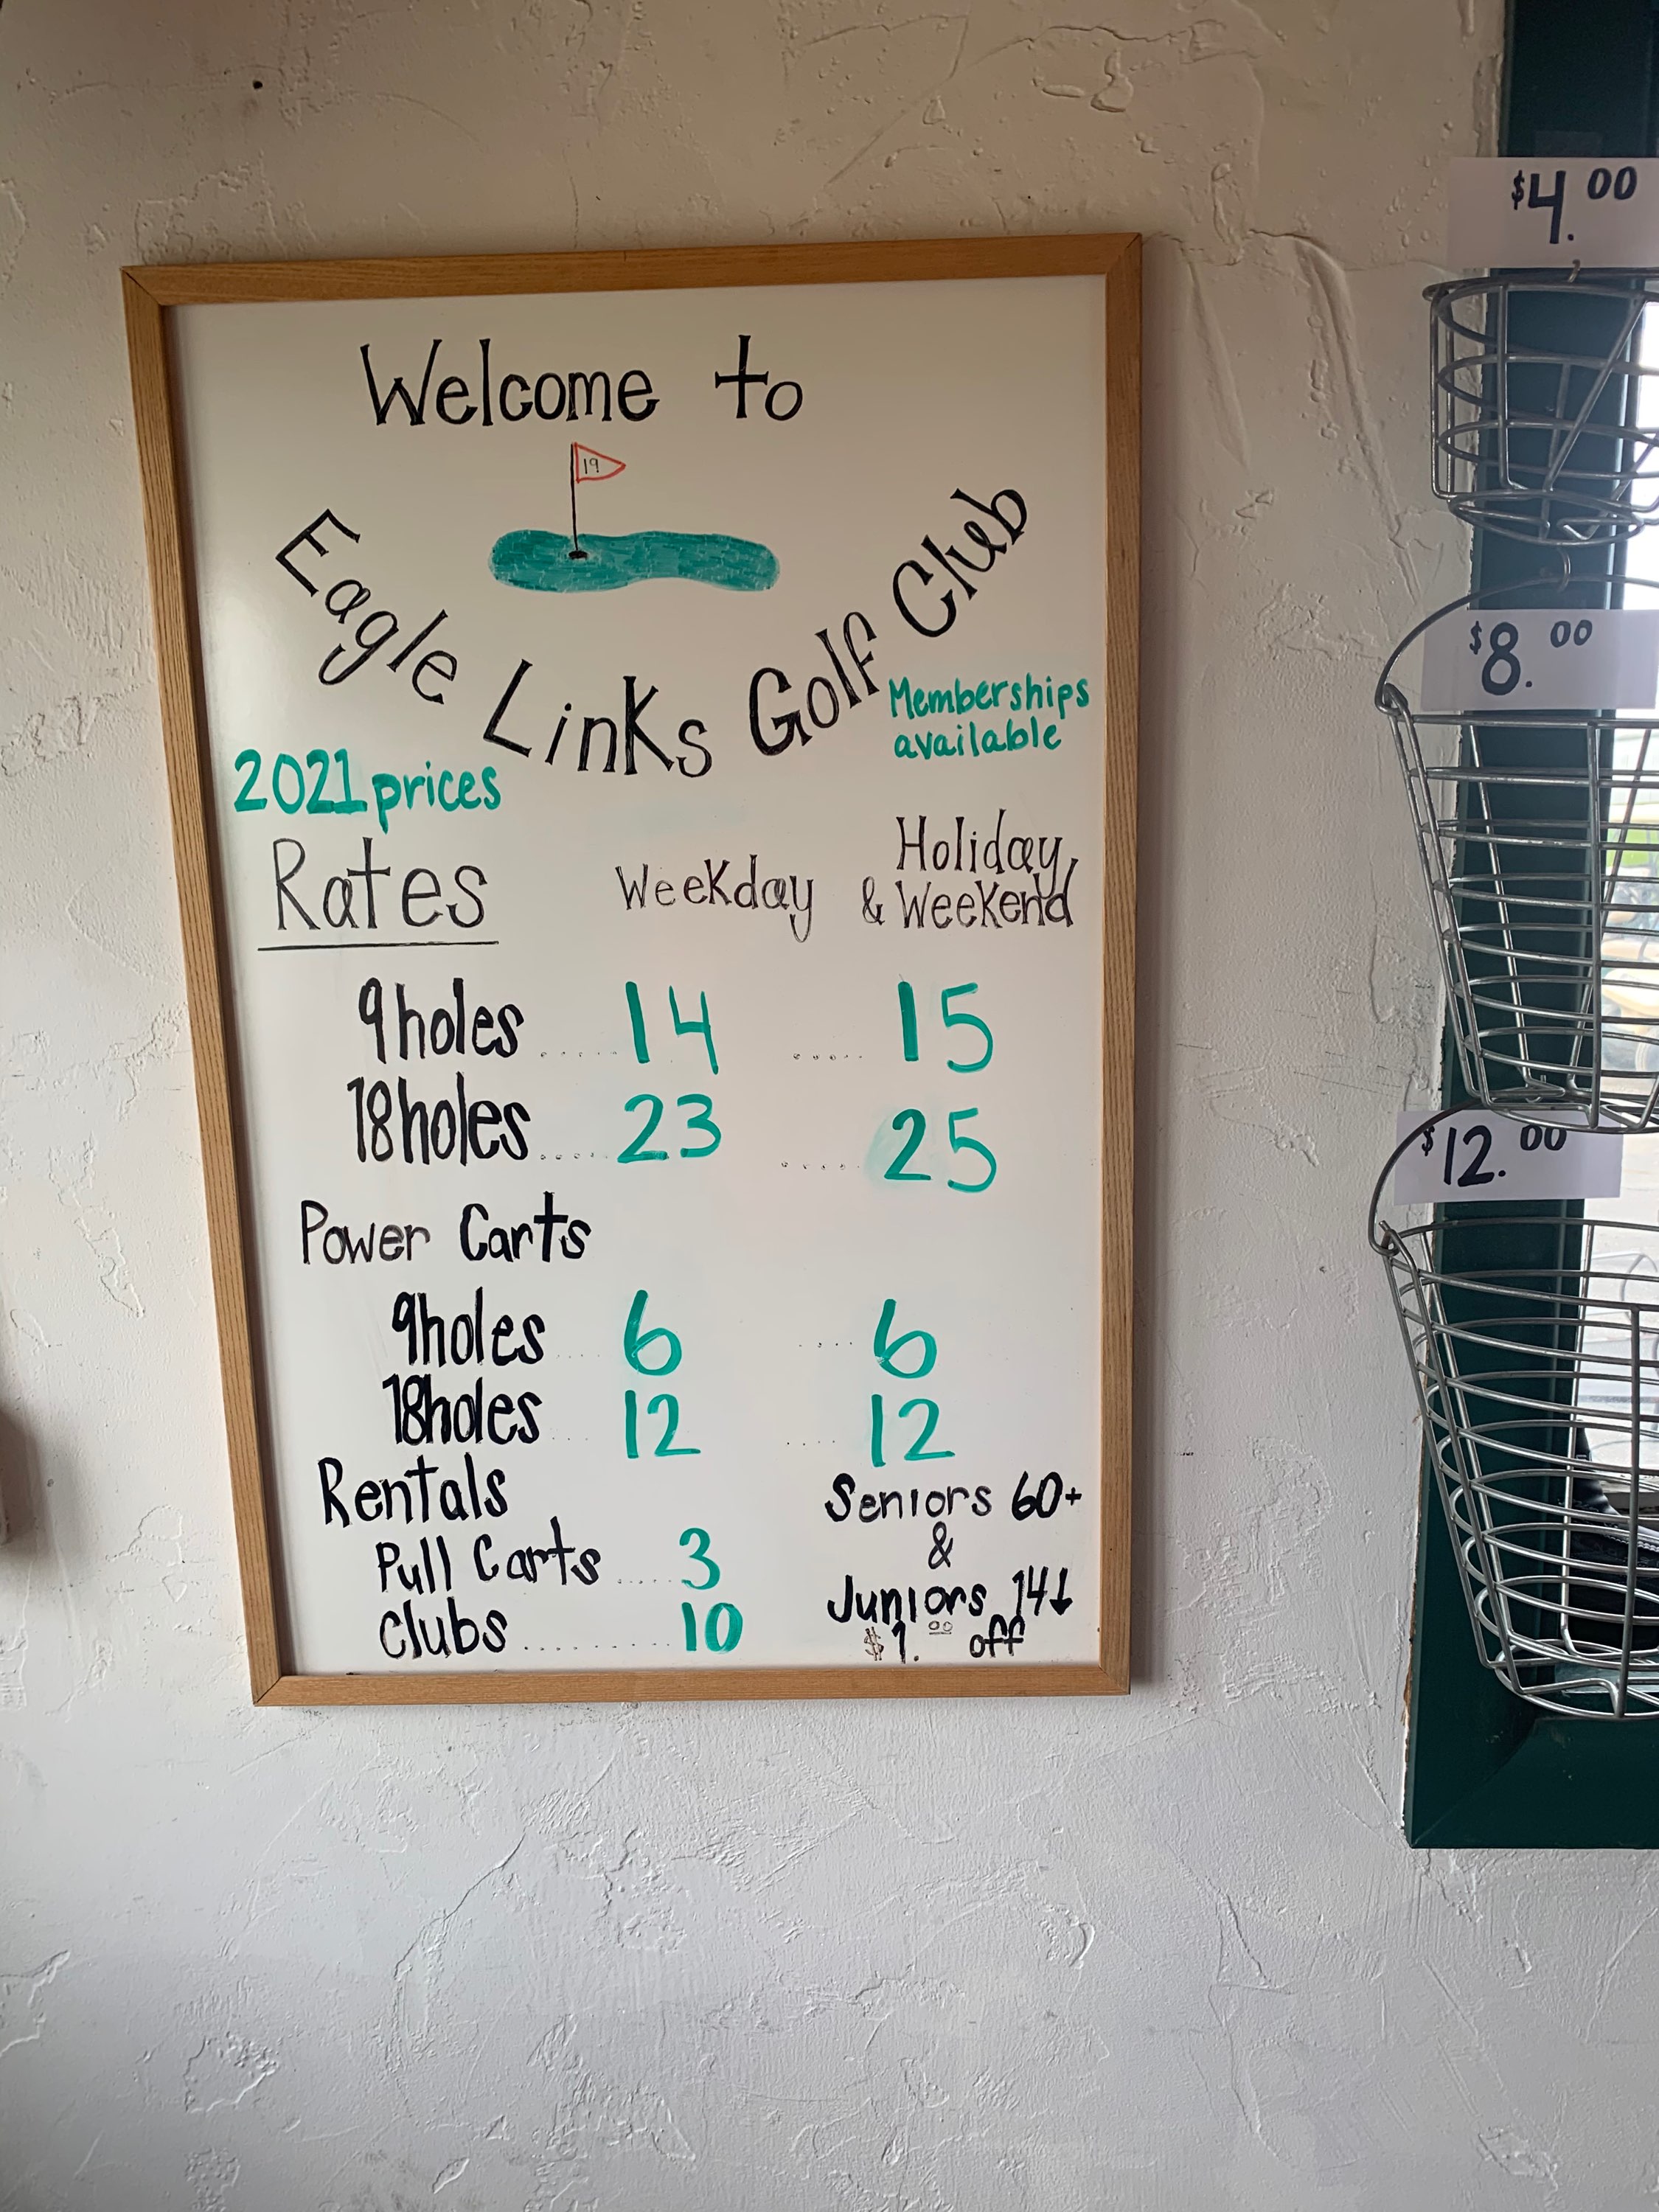 Welcome to
19
Eagle Links Golf Club
Memberships
available
2021 prices
Rates Weekday Holiday
& Weekend
9 holes ..... 14 ..... 15
18 holes ..... 23 ..... 25
Power Carts
9 holes .... 6 .... 6
18 holes .... 12 .... 12
Rentals
Pull Carts ..... 3
clubs ......... 10
Seniors 60+
&
Juniors 14↓
$1.00 off
$4.00
$8.00
$12.00